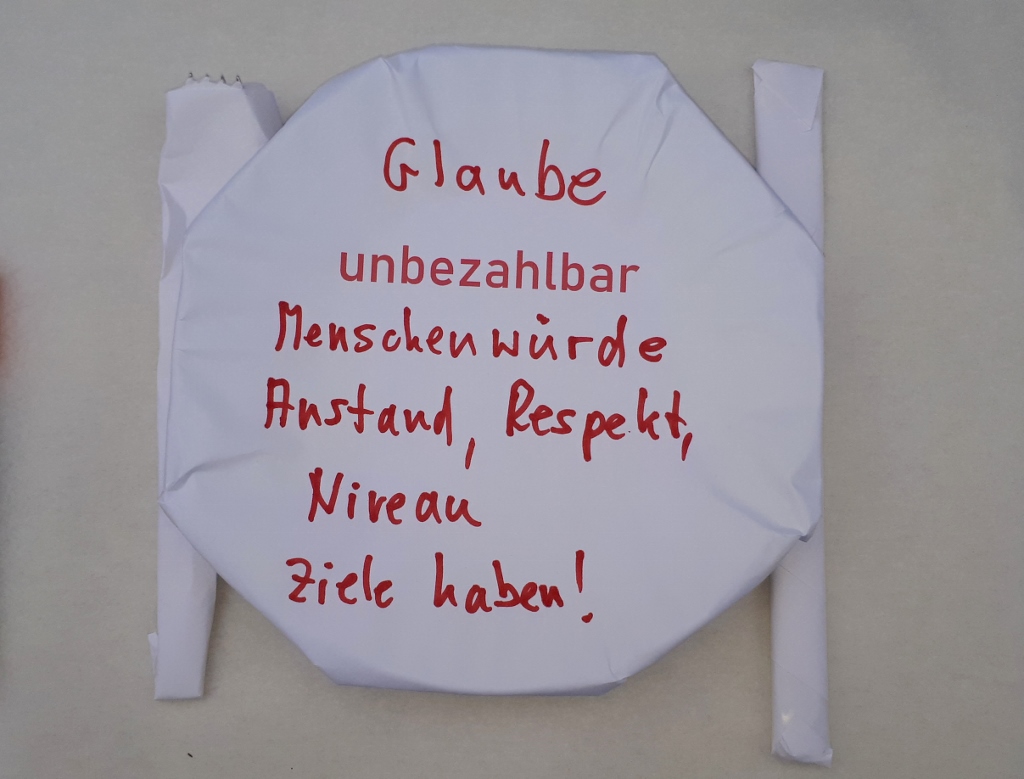 Glaube
unbezahlbar
Menschenwürde
Anstand, Respekt,
Niveau
Ziele haben!